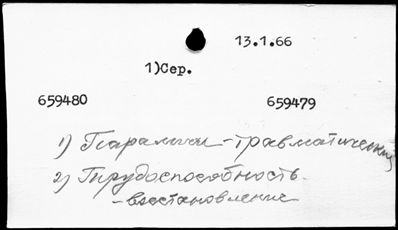 13.1.66
1)Сер.
659480 659479
1) Параличи - травматические
2) Трудоспособность -
- восстановление